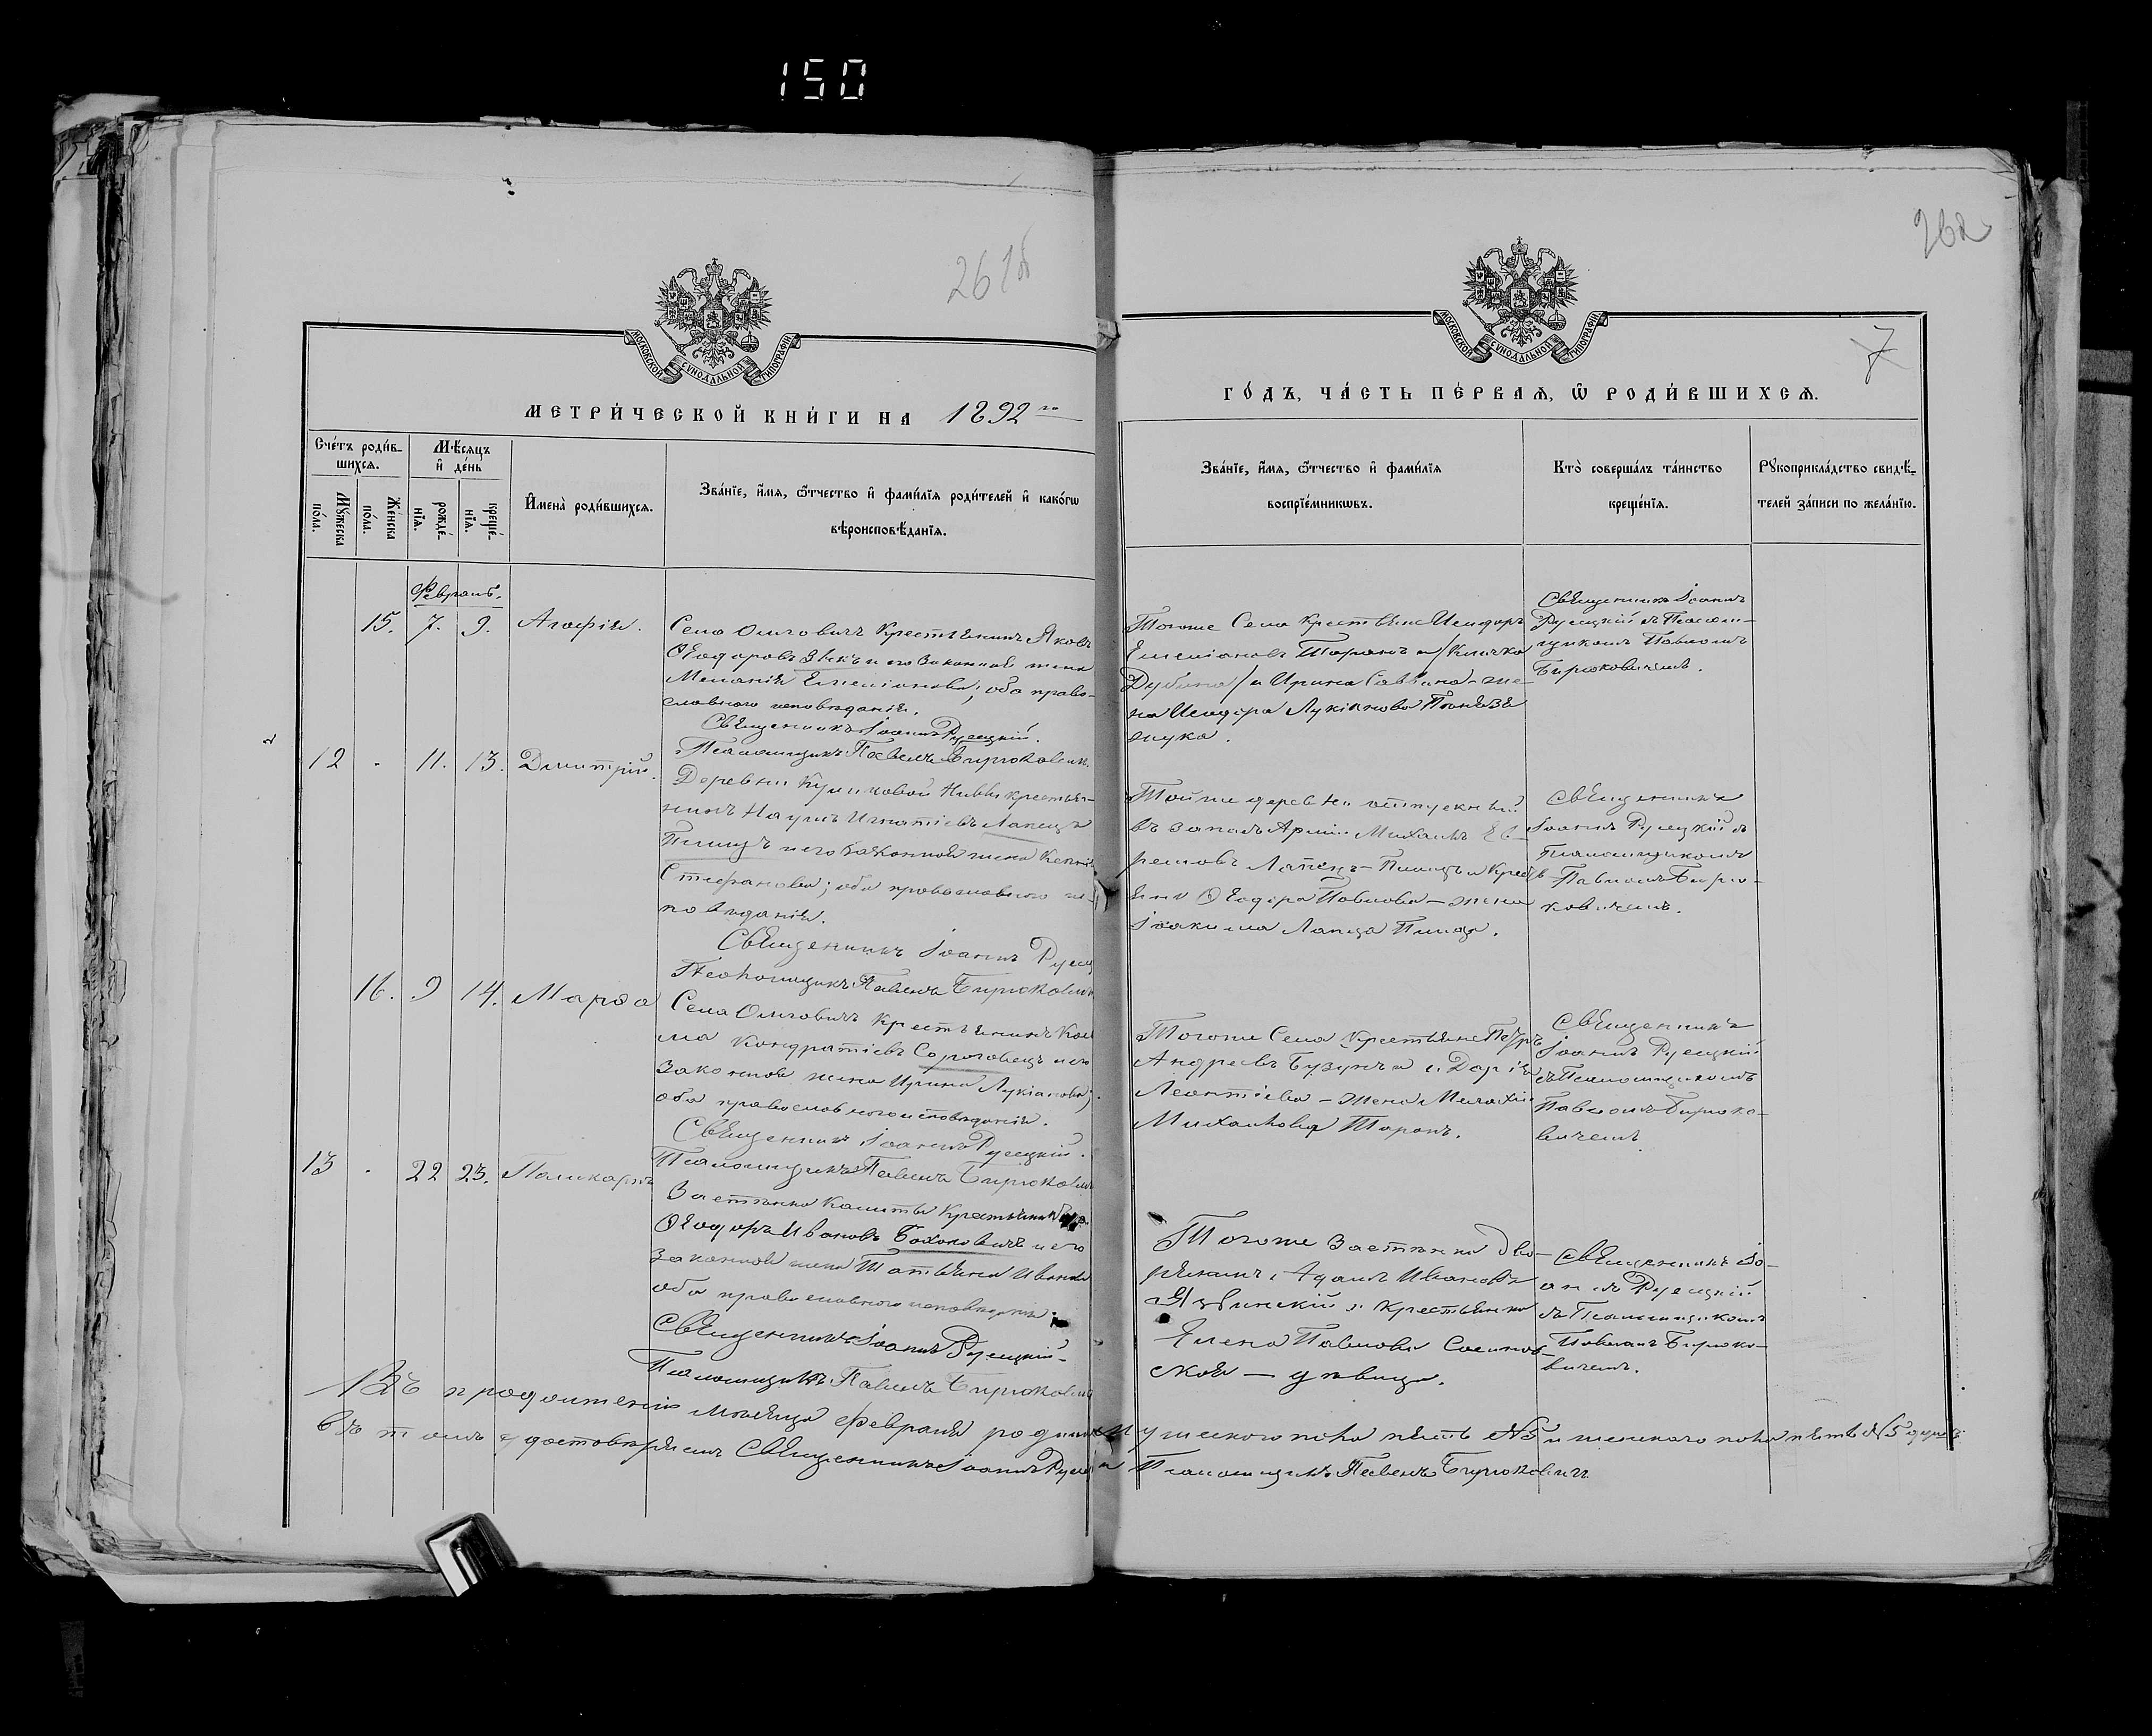 150
261б
262
7
МОСКОВСКОЙ СѴНОДАЛЬНОЙ ТИПОГРАФІИ
МОСКОВСКОЙ СѴНОДАЛЬНОЙ ТИПОГРАФІИ
МЕТРИ́ЧЕСКОЙ КНИ́ГИ НА 1892 го
ГО́ДЪ, ЧА́СТЬ ПЕ́РВАѦ, Ѿ РОДИ́ВШИХСѦ.
Сче́тъ роди́в-
шихсѧ.
Мꙋжеска
по́ла.
Же́нска
по́ла.
Мѣ́сѧцъ
и҆ де́нь
рожде́-
нїѧ.
креще́-
нїѧ.
И҆мена̀ роди́вшихсѧ.
Зва́нїе, и҆́мѧ, ѻ҆́тчество и҆ фами́лїѧ роди́телей и҆ како́гѡ
вѣроисповѣ́данїѧ.
Зва́нїе, и҆́мѧ, ѻ҆́тчество и҆ фами́лїѧ
воспрїе́мникѡвъ.
Кто̀ соверша́лъ та́инство
креще́нїѧ.
Рꙋкоприкла́дство свидѣ́-
телей за́писи по жела́нїю.
Февраль.
15. 7. 9. Агафія.
Села Ольговичъ Крестьянинъ Яковъ
Ѳеодоровъ Зыкъ и его законная жена
Меланія Емеліанова; оба право-
славного исповѣданія.
Священникъ Іоаннъ Русецкій.
Псаломщикъ Павелъ Бирюковичъ.
Тогоже Села Крестьяне Исидоръ
Емеліановъ Таранъ и /Кличка
Дубина/ и Ирина Саввина - же-
на Исидора Лукіанова
Священникъ Іоаннъ
Русецкій съ Псалом-
щикомъ Павломъ
Бирюковичемъ.
12 - 11. 13. Димитрій.
Деревни Куликовой Нивы крестья-
нинъ Наумъ Игнатіевъ Лапецъ
и его законная жена
Стефанова; оба православного ис-
повѣданія.
Священникъ Іоаннъ
Псаломщикъ Павелъ Бирюковичъ
Тойже деревни отпускный
въ запасъ Арміи Михаилъ
Лапецъ
Ѳеодора Павлова - жена
Іоакима Лапца
Священникъ
Іоаннъ Русецкій съ
Псаломщикомъ
Павломъ Бирю-
ковичемъ.
16. 9 14. Марѳа
Села Ольговичъ крестьянинъ
Кондратіевъ Сороговецъ и его
законная жена Ирина Лукіанова;
оба православного исповѣданія.
Священникъ Іоаннъ Русецкій.
Псаломщикъ Павелъ Бирюковичъ
Тогоже Села Крестьяне Петръ
Андреевъ и Дарія
Леонтіева - жена
Михайлова Таранъ.
Священникъ
Іоаннъ Русецкій
съ Псаломщикомъ
Павломъ Бирюко-
вичемъ.
13 - 22 23. Поликарпъ
Застѣнка Крестьянинъ
Ѳеодоръ Ивановъ и его
законная жена Татьяна
оба православного исповѣданія.
Священникъ Іоаннъ Русецкій.
Псаломщикъ Павелъ Бирюковичъ
Тогоже застѣнка дво-
рянинъ Адамъ Ивановъ
Язвинскій и крестьянка
Елена Павлова
- дѣвица.
Священникъ Іо-
аннъ Русецкій
съ Псаломщикомъ
Павломъ Бирюко-
вичемъ.
Въ продолженіи мѣсяца февраля мужеского пола пять №5 и женскаго пола пять №5
въ томъ Священникъ Іоаннъ Псаломщикъ Павелъ Бирюковичъ